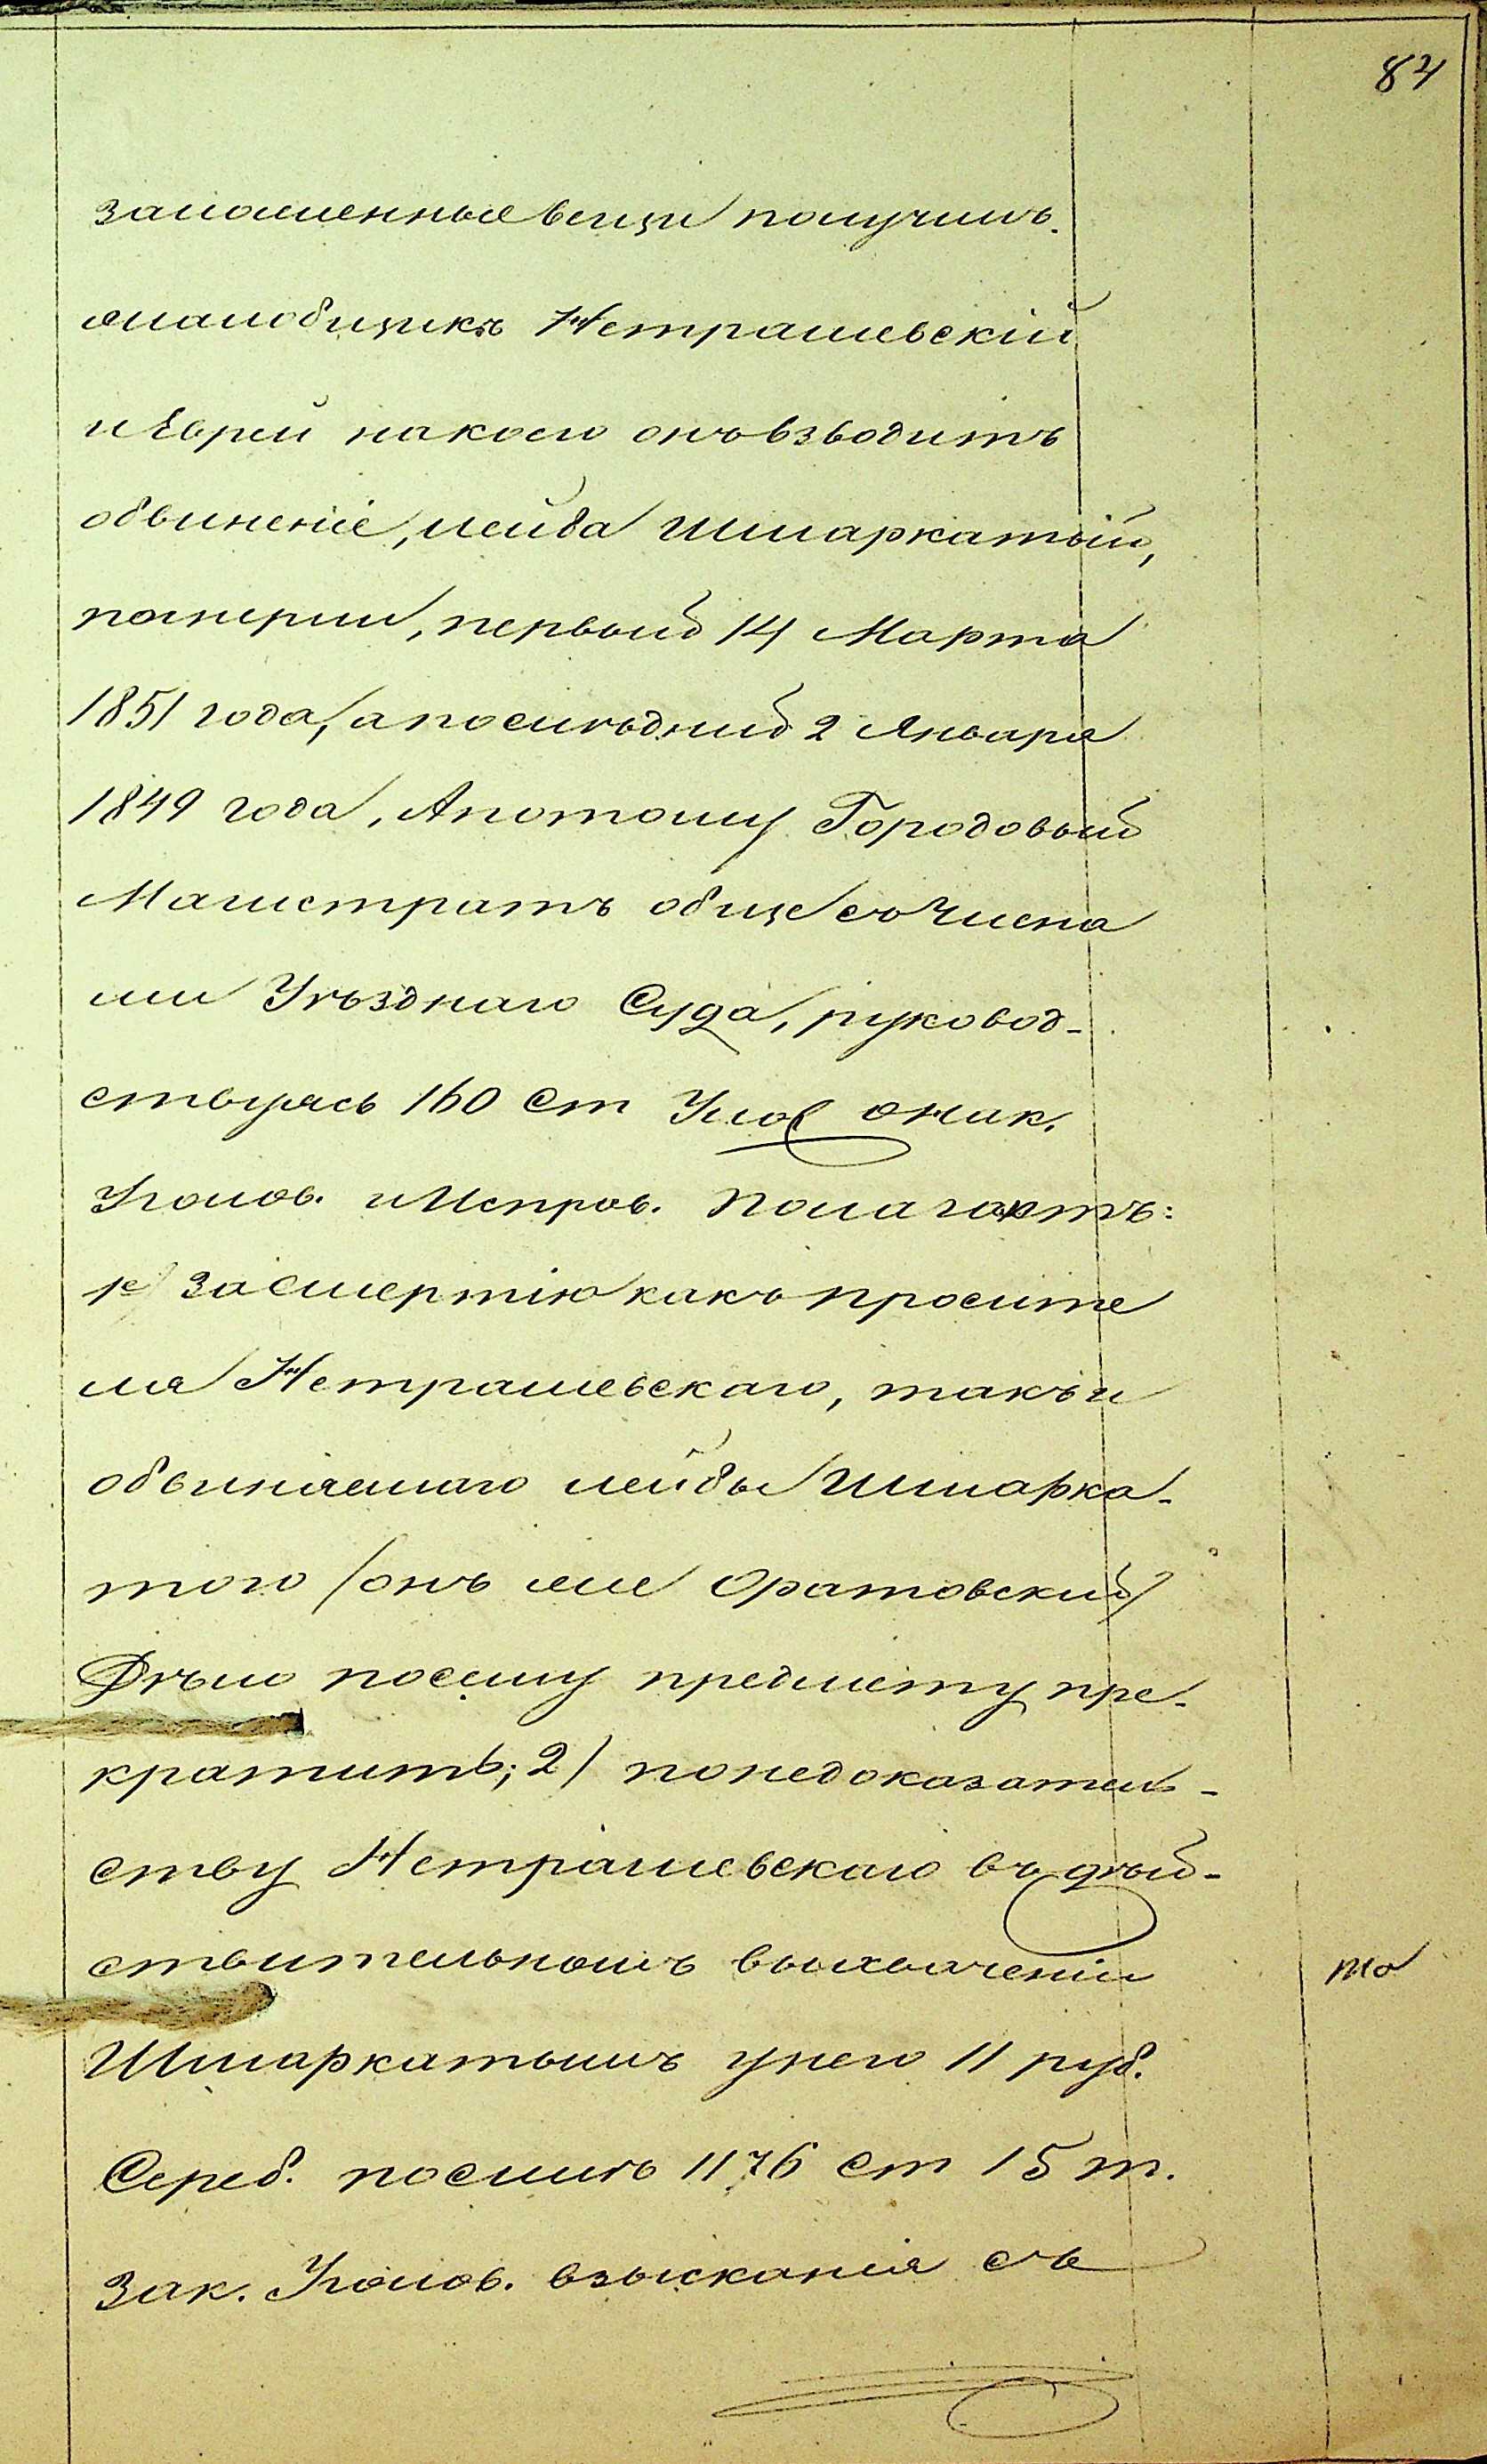 84
заложенные вещи получилъ.
жалобщикъ Нетрашевскій
и Еврей накоего онъ взводитъ
обвиненіе, Лейба Шмаркатый,
померли, первый 14 Марта
1851 года, а послѣдній 2 Января
1849 года, А потому Городовый
Магистратъ обще съ Члена
ми Уѣзднаго Суда, руковод-
ствуясь 160 ст Улож о нак.
Уголов. и Исправ. Полагаетъ:
1е) За смертію какъ просите
ля Нетрашевскаго, такъ и
обвиняемаго Лейбы Шмарка-
того /онъ же Оратовскій/
Дѣло по сему предмету пре-
кратить; 2) по недоказатель-
ству Нетрашевскаго въ дѣй-
ствительномъ выхваченіи
Шмаркатымъ у него 11 руб.
Сереб. по силѣ 1176 ст 15 т.
Зак. Уголов. взысканія съ
то